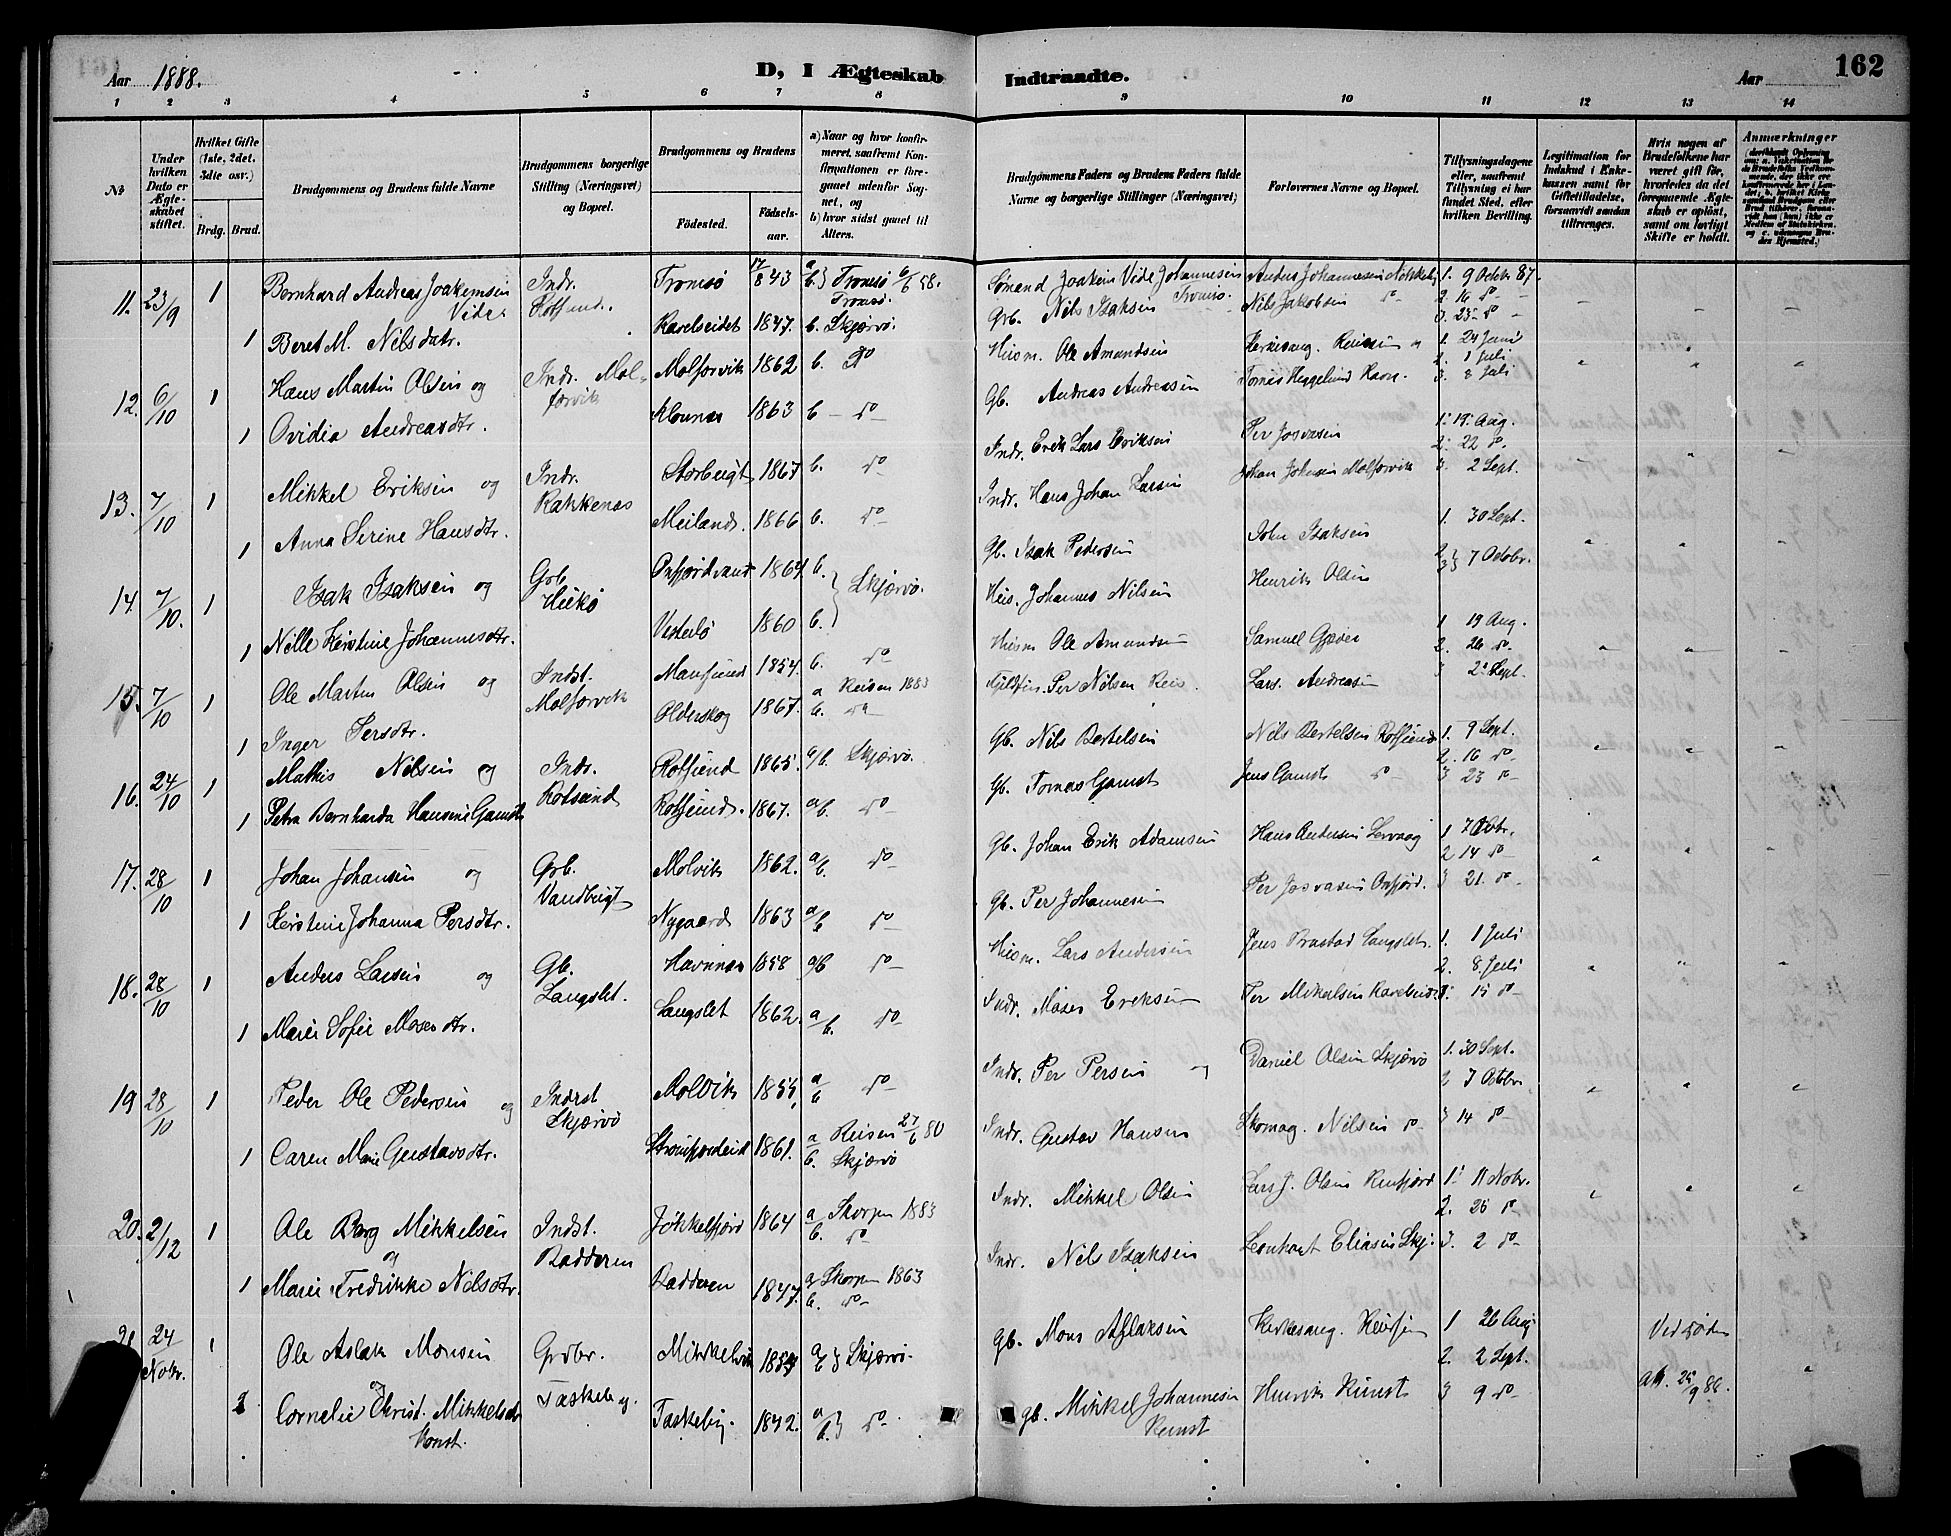 Aar 1888.
D, I Ægteskab Indtraadte.
Aar 162
1 2 3 4 5 6 7 8 9 10 11 12 13 14
No
Under hvilken Dato er Ægteskabet stiftet.
Hvilket Gifte (1ste, 2det, 3die osv.)
Brdg. Brud.
Brudgommens og Brudens fulde Navne
Brudgommens borgerlige Stilling (Næringsvei) og Bopæl.
Brudgommens og Brudens
Fødested. Fødselsaar.
a) Naar og hvor konfirmeret, saafremt Konfirmationen er foregaaet udenfor Sognet, og
b) hvor sidst gaaet til Alters.
Brudgommens Faders og Brudens Faders fulde Navne og borgerlige Stillinger (Næringsvei)
Forlovernes Navne og Bopæl.
Tillysningsdagene eller, saafremt Tillysning ei har fundet Sted, efter hvilken Bevilling.
Legitimation for Indskud i Enkekassen samt for Giftetilladelse, forsaavidt saadan tiltrænges.
Hvis nogen af Brudefolkene har været gift før, hvorledes da det foregaaende Ægteskab er opløst, samt om lovligt Skifte er holdt.
Anmærkninger
11. 23/9 1 Bernhard Andreas Joakimsen Vide Indr. Rotsund. Tromsø 17/8 43 a/b} Tromsø 6/6 58. Tromsø. Sømand Joakim Vide Johannesen Tromsø. Anders Johannesen Nøkkeby 1. 9 Octob 87.
1 Beret M. Nilsdatr. Kavelseidet 1847. b. Skjærvø. Grb. Nils Isaksen Nils Jakobsen do 2. 16 do 3. 23 do
12. 6/10 1 Hans Martin Olsen og Indr. Molforvik Molforvik 1862 b. do Husm. Ole Amundsen Kirkesang. 1. 24 Juni 2. 1 Juli
1 Ovidia Andreasdtr. 1863 b do Gb. Andreas Andreasen Tomas Heggelund Ravn. 3. 8 Juli
13. 7/10 1 Mikkel Eriksen og Indr. Rakkenæs Storbugt 1867 b. do Indr. Erik Lars Eriksen Per Josvasen 1. 19 Aug. 2. 22 do
1 Anna Serine Hansdtr. Meiland. 1866 b. do Indr. Hans Johan Larsen Johan Johnsen Molforvik 3. 2 Sept.
14. 7/10. 1 Isak Isaksen og Grb Hukø 1864 b. Skjærvø. Gb. Isak Pedersen John Isaksen 1. 30 Sept.
1 Nille Kirstine Johannesdtr. 1860 b. Hus. Johannes Nilsen Henrik Olsen 2. 3} 7 Octobr.
15. 7/10 1 Ole Martin Olsen og Indst. Molforvik 1854. b. do Husm Ole Amundsen Samuel 1 19 Aug. 2. 26 do
1 Inger Persdtr. Olderskog 1867. a Reisen 1883 b. do Per Nilsen Reis. Lars Andreasen 3 2 Sept.
16. 24/10 1 Mathis Nilsen og Indr. Rotsund Rotsund 1865. a/b. Skjærvø. Gb. Nils Bertelsen Nils Bertelsen Rotsund 1. 9 Sept. 2. 16 do
1 Petra Bernharda Hansine Gamst Rotsund. 1867. a/b. do Gb. Tomas Gamst Jens Gamst do 3 23 do
17. 28/10 1 Johan Johansen og Grb. Vandbugt Molvik 1862. a/b. do Gb. Johan Erik Adamsen Hans Andersen 1 7 Octbr. 2 14 do
1 Kirstine Johanna Persdtr. Nygaard 1863 a/b do Gb. Per Johannesen Per Josvasen Oxfjord. 3 21. do
18. 28/10 1 Anders Larsen og Gb. Langslet. Havnnæs 1858 a/b do Husm. Lars Andersen Jens Brastad Langslet. 1. 1 Juli 2. 8. Juli
1 Marie Sofie Mosesdtr. Langslet 1862. a/b. do Indr. Moses Eriksen Per Mikalsen 3. 15 do
19 28/10 1 Peder Ole Pedersen og Indrst Skjærvø Molvik 1855. a/b do Indr. Per Persen og Daniel Olsen Skjærvø 1. 30 Sept. 2 7 Octbr
1 Caren Marie Gustavsdtr. 1861. a Reisen 27/6 80 b. Skjærvø Indr. Gustav Hansen Skomag. Nilsen do 3 14 do
20. 2/12 1 Ole Borg Mikkelsen og Indst. Badderen Jøkkelfjord 1864 a Skorpen 1883 b. do Indr. Mikkel Olsen Lars J. Olsen 1. 11 Nobr. 2. 25 do
1 Marie Fredrikke Nilsdtr. Badderen 1847. a Skorpen 1863 b. do Indr. Nils Isaksen Leonhart Eliasen Skj: 3. 2 do
21 24 Nobr. 1 Ole Aslak Monsen og Grdbr. Taskeby. Mikkelvik a/b} Skjærvø. Gb. Mons Aslaksen Kirkesang. 1 26 Aug 2. 2 Sept. Ved døden
Cornelie Christ. Mikkelsdtr Kunst. Taskeby. 1842. a/b} do Gb. Mikkel Johannesen Kunst Henrik Kunst 3 9 do